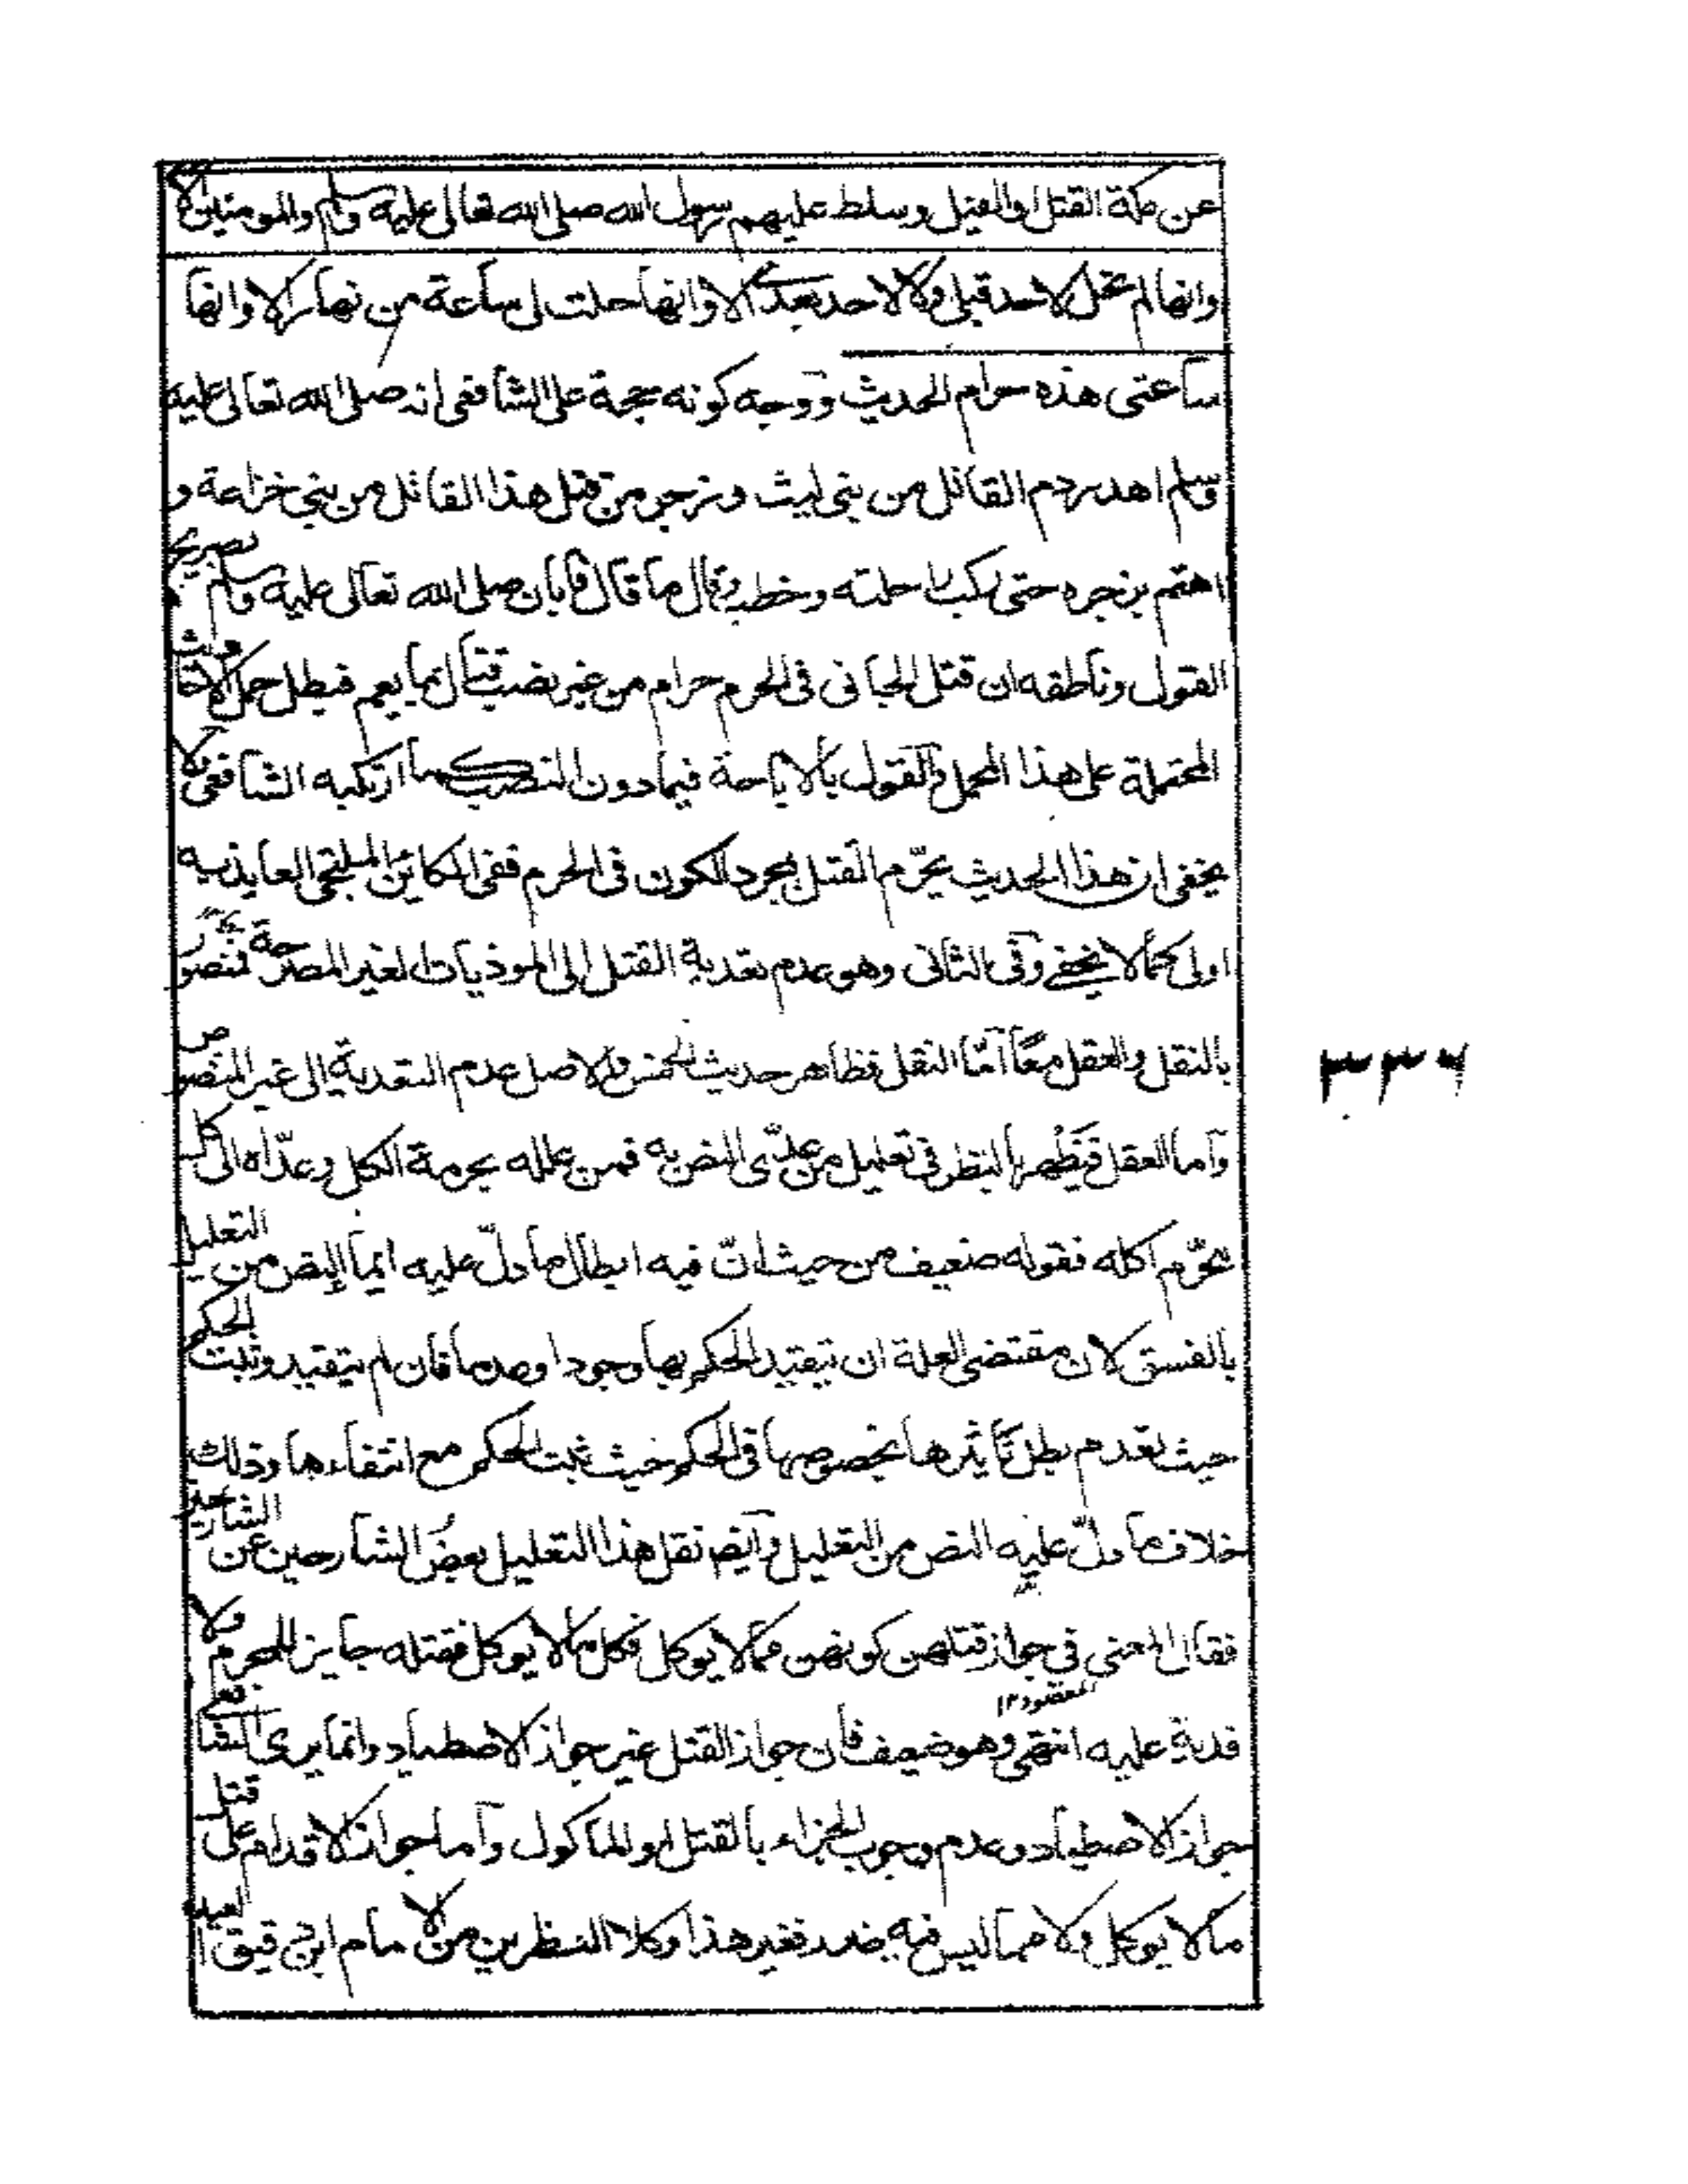 عن مكة القتل او الفيل وسلط عليهم رسول الله صلى الله تعالى عليه وسلم والمومنين الا
وانها لم تحل لاحد قبلي ولا لاحد بعدي الا وانها حلت لي ساعة من نهار الا وانها
ساعتي هذه حرام الحديث ووجه كونه حجة على الشافعي انه صلى الله تعالى عليه
وسلم اهدر دم القاتل من بني ليث وزجر من قتل هذا القاتل من بني خزاعة و
اهتم بزجره حتى ركب راحلته وخطب وقال ما قال فابان صلى الله تعالى عليه وسلم بصريح
القول وناطقه ان قتل الجاني في الحرم حرام من غير نصب قتال بما يعم فبطل حمل الاحاديث
المحتملة على هذا المحمل والقول بالاباحة فيما دون النصب كما ارتكبه الشافعي ولا
يخفى ان هذا الحديث يحرّم القتل بمجرد الكون في الحرم ففي الكائن الملتجي العايذ به
اولى كما لا يخفى وفي الثاني وهو عدم تعدية القتل الى الموذيات لغير المصرحة منصور
بالنقل والعقل معًا امّا النقل فظاهر حديث الخمس والاصل عدم التعدية الى غير المنصوص
وآما العقل فيَظْهر بالنظر في تعليل من عدّى النص به فمن علله بحرمة الاكل وعدّاه الى كل
محرّم اكله فقوله ضعيف من حيث انّ فيه ابطال ما دلّ عليه ايماء النص من التعليل
بالفسق لان مقتضى العلة ان يتقيد الحكم بها وجودا وعدما فان لم يتقيد وثبت الحكم
حيث تعدم بطل تاثيرها بخصوصها في الحكم حيث ثبت الحكم مع انتفاءها وذلك
خلاف ما دلّ عليه النص من التعليل وايضا نقل هذا التعليل بعضُ الشارحين عن الشافعي
فقال المعنى في جواز قتلهن كونهن مما لا يوكل فكل ما لا يوكل فقتله جايز للمحرم ولا
فدية عليه انتهى وهو ضعيف فان جواز القتل غير جواز الاصطياد وانما يرى الشافعي
جواز الاصطياد وعدم وجوب الجزاء بالقتل لغير الماكول وآما جواز الاقدام على قتل
ما لا يوكل ولا مما ليس فيه ضرر فغير هذا وكلا النظرين من الامام ابن دقيق العيد
٣٣٦